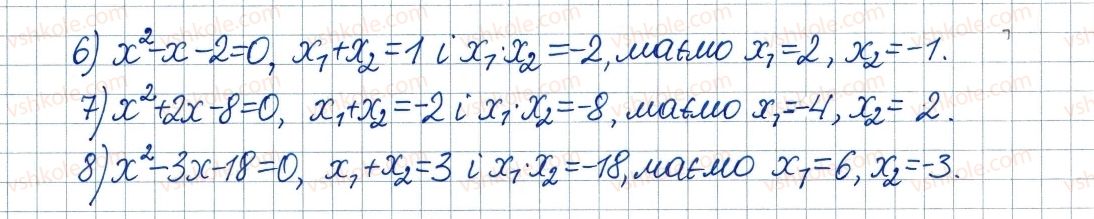 6) x²-x-2=0, x₁+x₂=1 і x₁·x₂=-2, маємо x₁=2, x₂=-1.
7) x²+2x-8=0, x₁+x₂=-2 і x₁·x₂=-8, маємо x₁=-4, x₂= 2.
8) x²-3x-18=0, x₁+x₂=3 і x₁·x₂=-18, маємо x₁=6, x₂=-3.